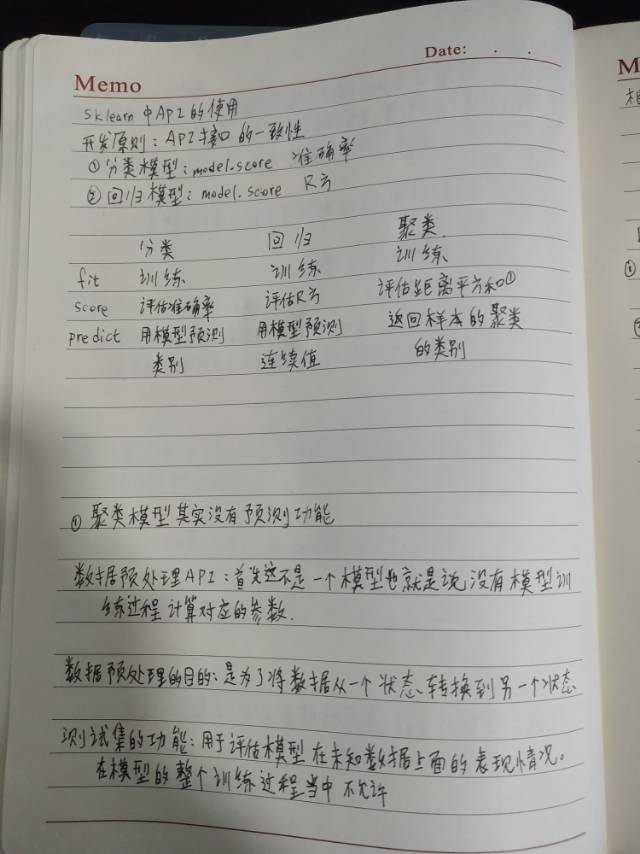 Date: . .
Memo
sklearn中API的使用
开发原则：API接口的一致性
①分类模型：model.score 准确率
②回归模型：model.score R方
分类 回归 聚类
fit 训练 训练 训练
score 评估准确率 评估R方 评估距离平方和①
predict 用模型预测 用模型预测 返回样本的聚类
类别 连续值 的类别
①聚类模型其实没有预测功能
数据预处理API：首先这不是一个模型也就是说没有模型训
练过程计算对应的参数.
数据预处理的目的：是为了将数据从一个状态转换到另一个状态
测试集的功能：用于评估模型在未知数据上面的表现情况。
在模型的整个训练过程当中不允许
M
①